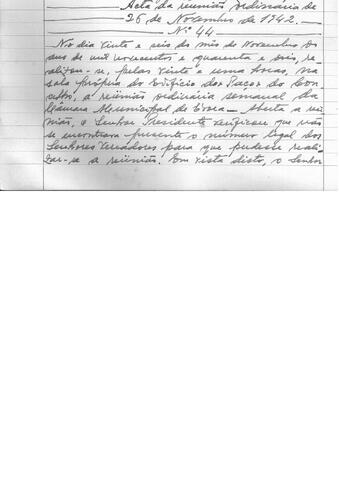 Acta da reunião ordinária de
26 de Novembro de 1942.
Nº 44
No dia vinte e seis do mês de Novembro do
ano de mil novecentos e quarenta e dois, re-
alizou-se, pelas vinte e uma horas, na
sala própria do Edifício dos Paços do Con-
celho, a reùnião ordinária semanal da
Câmara Municipal de Évora — Aberta a reù-
nião, o Senhor Presidente verificou que não
se encontrava presente o número legal dos
Senhores Vereadores para que pudesse reali-
zar-se a reùnião. Em vista disto, o Senhor